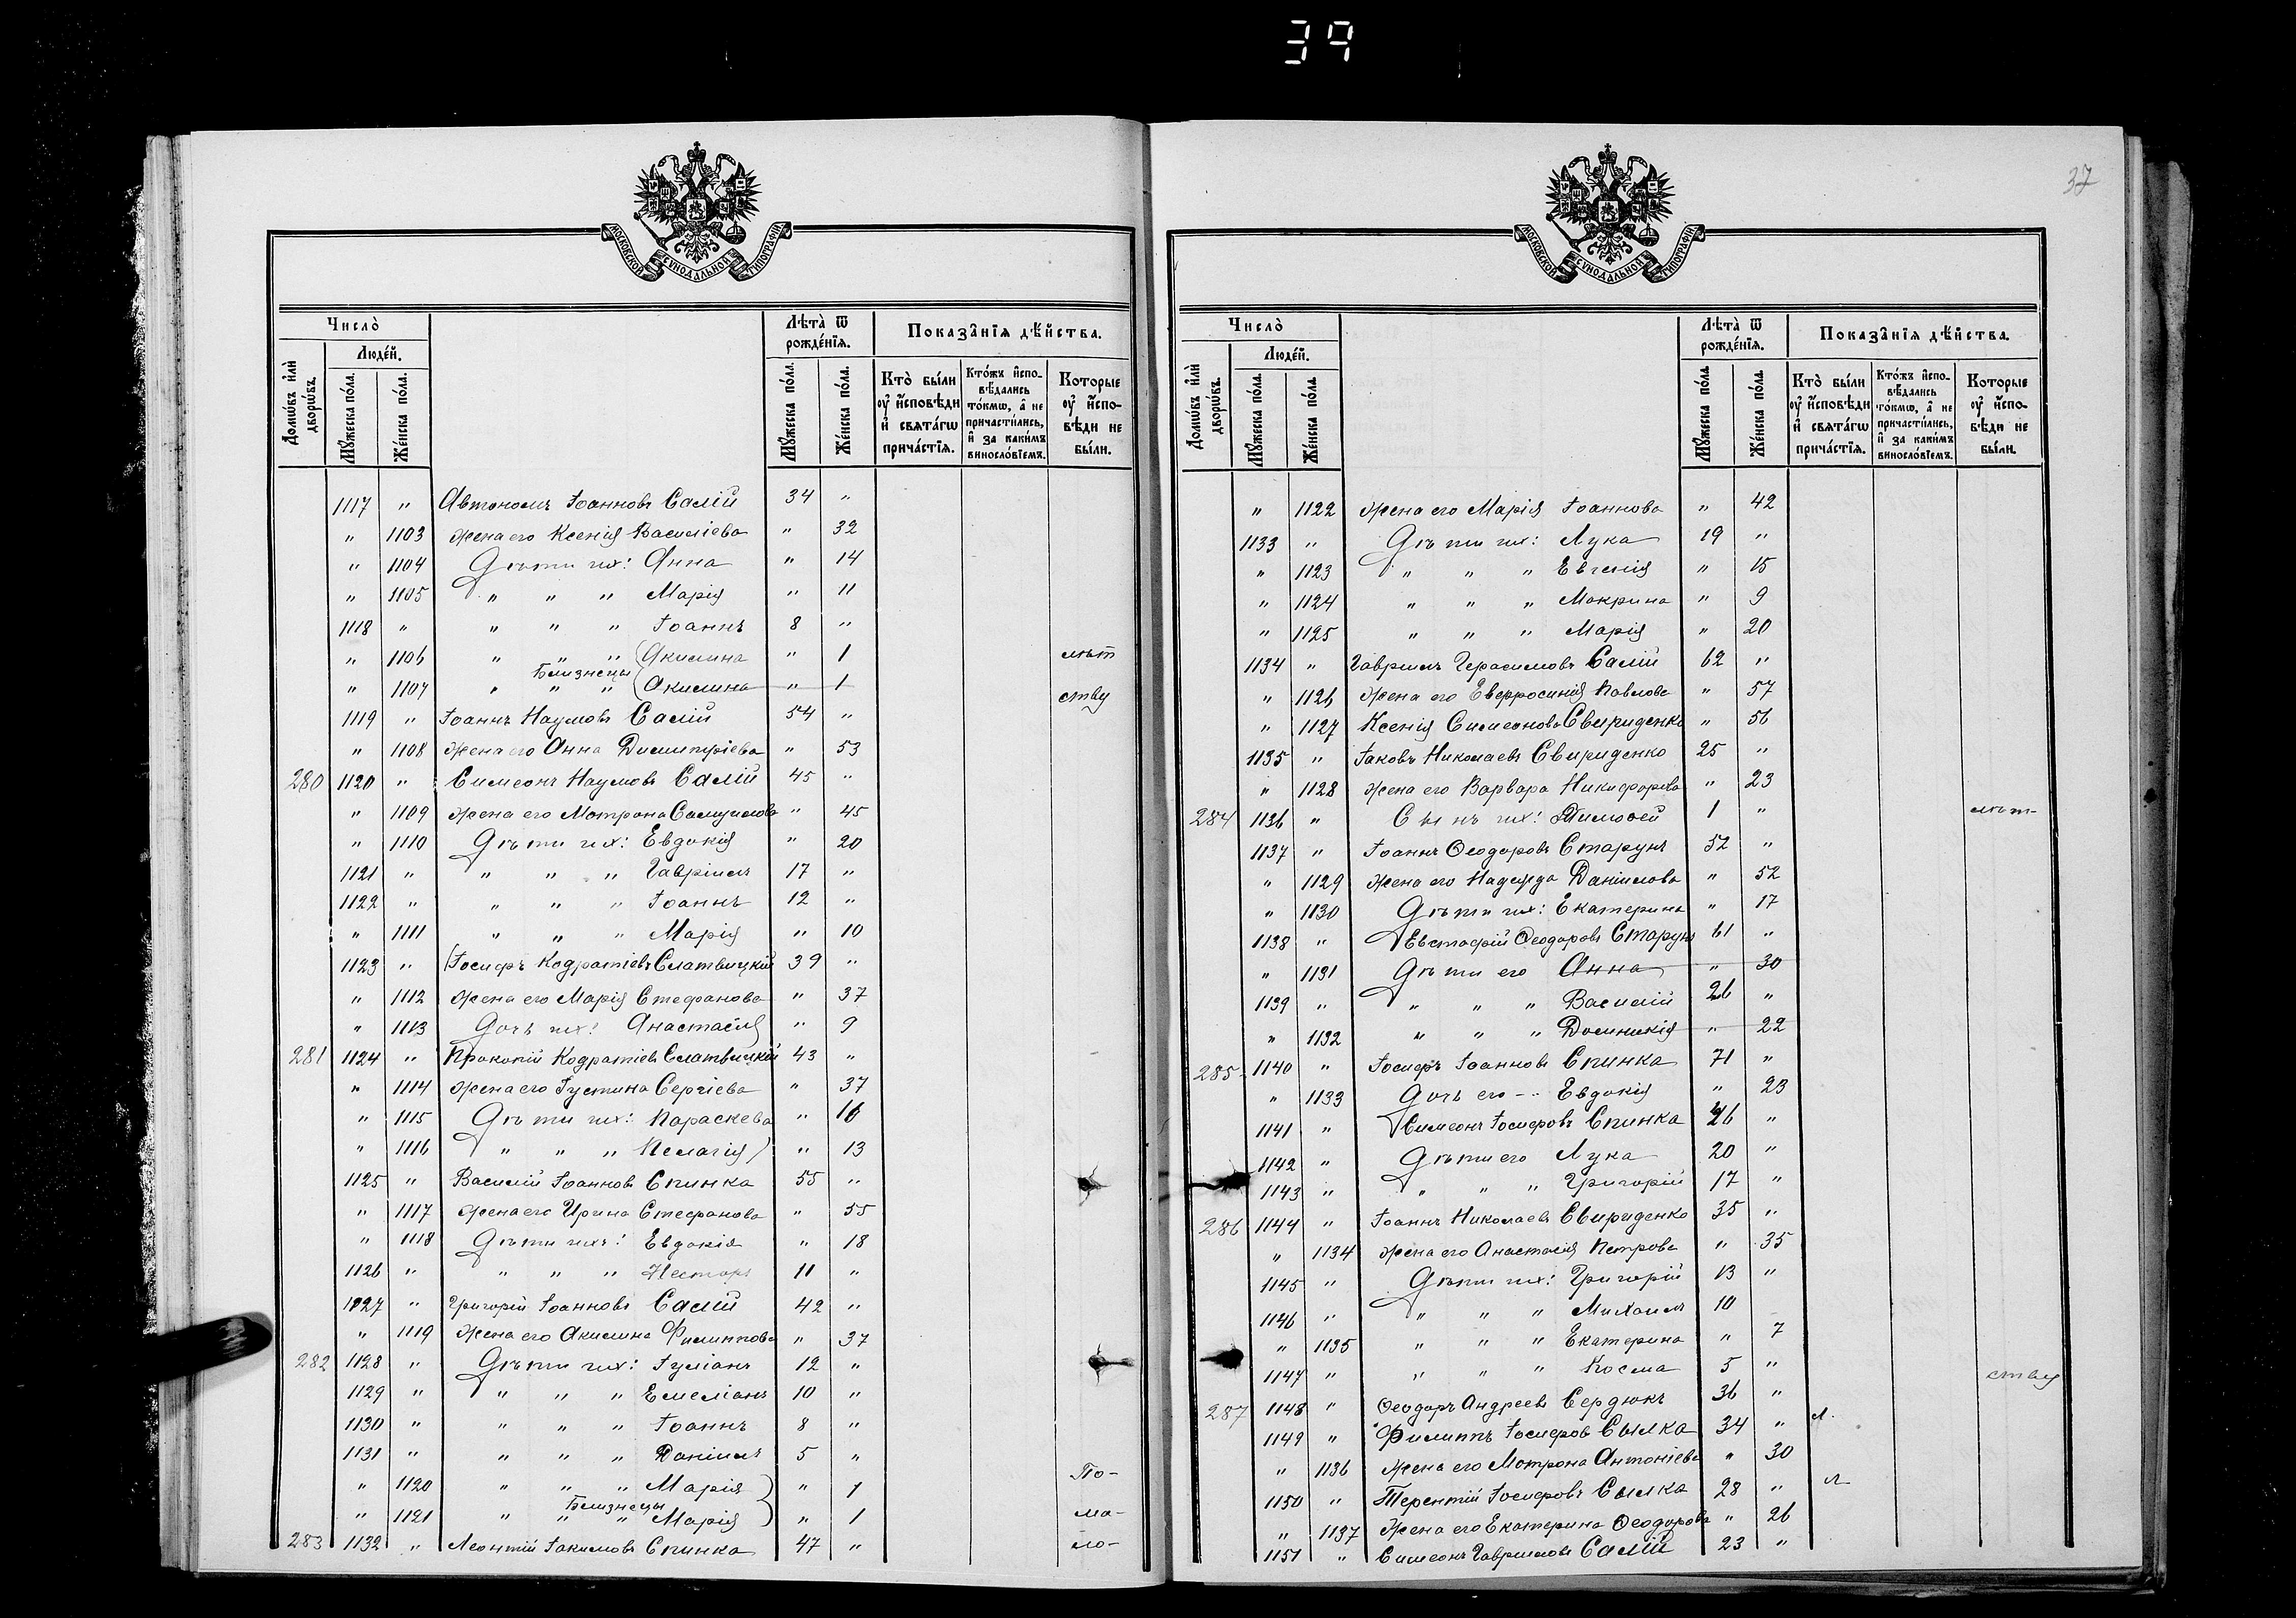 39
МОСКОВСКОЙ СѴНОДАЛЬНОЙ ТИПОГРАФІИ
Число̀ Лѣта̀ ѿ рожде́нїѧ. Показа̑нїѧ дѣ́йства.
Домѡ́въ и҆лѝ дворѡ́въ. Люде́й. Мꙋ́жеска по́ла. Же́нска по́ла. Мꙋ́жеска по́ла. Же́нска по́ла. Кто̀ бы́ли ᲂу҆ и҆́сповѣди и҆ свѧта́гѡ прича́стїѧ. Кто́жъ и҆спо-вѣ́дались то́кмѡ, а҆ не причасти́лись, и҆ за каки́мъ винослові́емъ. Которые ᲂу҆ и҆́спо-вѣди не бы́ли.
1117 " Автономъ Іоанновъ Салій 34 "
" 1103 Жена его Ксенія Василіева " 32
" 1104 Дѣти ихъ: Анна " 14
" 1105 " " " Марія " 11
1118 " " " " Іоаннъ 8 "
" 1106 " " " Акилина " 1 лѣт
Близнецы
" 1107 " " " Акилина " 1 ству
1119 " Іоаннъ Наумовъ Салій 54 "
" 1108 Жена его Анна Димитріева " 53
280 1120 " Симеонъ Наумовъ Салій 45 "
" 1109 Жена его Мотрона Самуилова " 45
" 1110 Дѣти ихъ: Евдокія " 20
1121 " " " " Гавріилъ 17 "
1122 " " " " Іоаннъ 12 "
" 1111 " " " Марія " 10
1123 " Іосифъ Кодратіевъ Слатвицкій 39 "
" 1112 Жена его Марія Стефанова " 37
" 1113 Дочь ихъ: Анастасія " 9
281 1124 " Прокопій Кодратіевъ Слатвицкій 43 "
" 1114 Жена его Іустина Сергіева " 37
" 1115 Дѣти ихъ: Параскева " 16
" 1116 " " " Пелагія " 13
1125 " Василій Іоанновъ Спинка 55 "
" 1117 Жена его Ирина Стефанова " 55
" 1118 Дѣти ихъ: Евдокія " 18
1126 " " " " Несторъ 11 "
1127 " Григорій Іоанновъ Салій 42 "
" 1119 Жена его Акилина Филиппова " 37
282 1128 " Дѣти ихъ: Іуліанъ 12 "
1129 " " " " Емеліанъ 10 "
1130 " " " " Іоаннъ 8 "
1131 " " " " Даніилъ 5 "
" 1120 " " " Марія " 1 По-
Близнецы
" 1121 " " " Марія " 1 ма-
283 1132 " Леонтій Іакимовъ Спинка 47 " ло-
37
МОСКОВСКОЙ СѴНОДАЛЬНОЙ ТИПОГРАФІИ
Число̀ Лѣта̀ ѿ рожде́нїѧ. Показа̑нїѧ дѣ́йства.
Домѡ́въ и҆лѝ дворѡ́въ. Люде́й. Мꙋ́жеска по́ла. Же́нска по́ла. Мꙋ́жеска по́ла. Же́нска по́ла. Кто̀ бы́ли ᲂу҆ и҆́сповѣди и҆ свѧта́гѡ прича́стїѧ. Кто́жъ и҆спо-вѣ́дались то́кмѡ, а҆ не причасти́лись, и҆ за каки́мъ винослові́емъ. Которые ᲂу҆ и҆́спо-вѣди не бы́ли.
" 1122 Жена его Марія Іоаннова " 42
1133 " Дѣти ихъ: Лука 19 "
" 1123 " " " Евгенія " 15
" 1124 " " " Макрина " 9
" 1125 " " " Марія " 20
1134 " Гавриилъ Герасимовъ Салій 62 "
" 1126 Жена его Евфросинія Павлова " 57
" 1127 Ксенія Симеонова Свириденко " 56
1135 " Іаковъ Николаевъ Свириденко 25 "
" 1128 Жена его Варвара Никифорова " 23
284 1136 " Сынъ ихъ: Тимоѳей 1 " лѣт-
1137 " Іоаннъ Ѳеодоровъ Старунъ 52 "
" 1129 Жена его Надежда Даніилова " 52
" 1130 Дѣти ихъ: Екатерина " 17
1138 " Евстафій Ѳеодоровъ Старунъ 61 "
" 1131 Дѣти его Анна " 30
1139 " " " " Василій 26 "
" 1132 " " " Домникія " 22
285 1140 " Іосифъ Іоанновъ Спинка 71 "
" 1133 Дочь его -- Евдокія " 23
1141 " Симеонъ Іосифовъ Спинка 46 "
1142 " Дѣти его Лука 20 "
1143 " " " " Григорій 17 "
286 1144 " Іоаннъ Николаевъ Свириденко 35 "
" 1134 Жена его Анастасія Петрова " 35
1145 " Дѣти ихъ: Григорій 13 "
1146 " " " " Михаилъ 10
" 1135 " " " Екатерина " 7
1147 " " " " Косма 5 " ству
287 1148 " Ѳеодоръ Андреевъ Сердюкъ 36 "
1149 " Филиппъ Іосифовъ Сылка 34 " л.
" 1136 Жена его Мотрона Антоніева " 30
1150 " Терентій Іосифовъ Сылка 28 " л
" 1137 Жена его Екатерина Ѳеодорова " 26
1151 " Симеонъ Гавриловъ Салій 23 "